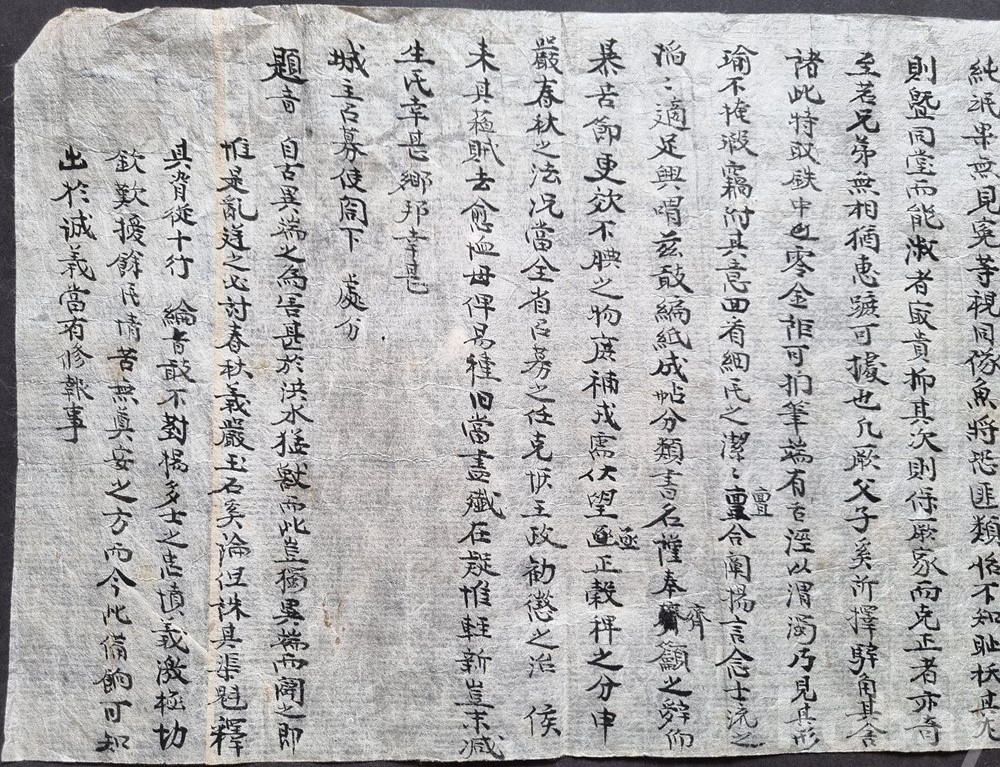 純泯畢無見冤等視同隊魚將恐匪類恬不知耻扶其尤
則曁同堂而能淑者最貴抑其次則保厥家而克正者亦奇
至若兄弟無相猶惠蹠可據也凡厥父子奚所擇騂角其舍
諸此特取鉄中也零金詎可捫筆端有舌涇以渭濁乃見其形
瑜不掩瑕竊附其意回看細民之潔〻亶合闡揚言念士流之
滔〻適足興喟玆敢編紙成帖分類書名謹奉齊籲之辭仰
暴苦節更效不腆之物庶補戎需伏望亟正穀稗之分申
嚴春秋之法况當全省召募之任克恢王政勸懲之治 侯
未其蓛賊去愈恤毋俾易種旧當盡殲在疑惟輕新豈末减
生民幸甚鄕邦幸甚
城主召募使閤下 處分
題音 自古異端之爲害甚於洪水猛獸而此豈獨異端而闢之卽
惟是亂逆之必討春秋義嚴玉石奚淪但誅其渠魁釋
其脅從十行 綸音敢不對揚多士之忠憤義激極切
欽歎援餘民情苦無奠安之方而今此備餉可知
出於誠義當有修報事